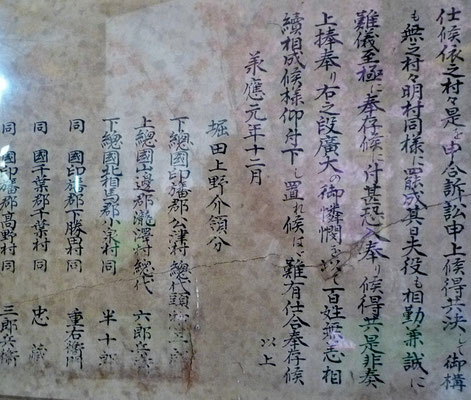 仕候依之村々是を申合訴訟申上候得共決し御構
も無之村々明村同様に罷成其日夫役も相勤兼誠に
難儀至極に奉存候に付甚恐入奉り候得共是非奏
上捧奉り右之段廣大の御憐愍を以て百姓無恙相
續相成候様仰付下し置れ候はゞ難有仕合奉存候
以上
承應元年十二月
堀田上野介領分
下總國印旛郡公津村總代
上總國山邊郡瀧澤村總代 六郎兵衛
下總國北相馬郡小泉村同 半十郎
同 國印旛郡下勝田村同 重右衛門
同 國千葉郡千葉村同 忠藏
同 國印旛郡高野村同 三郎兵衛